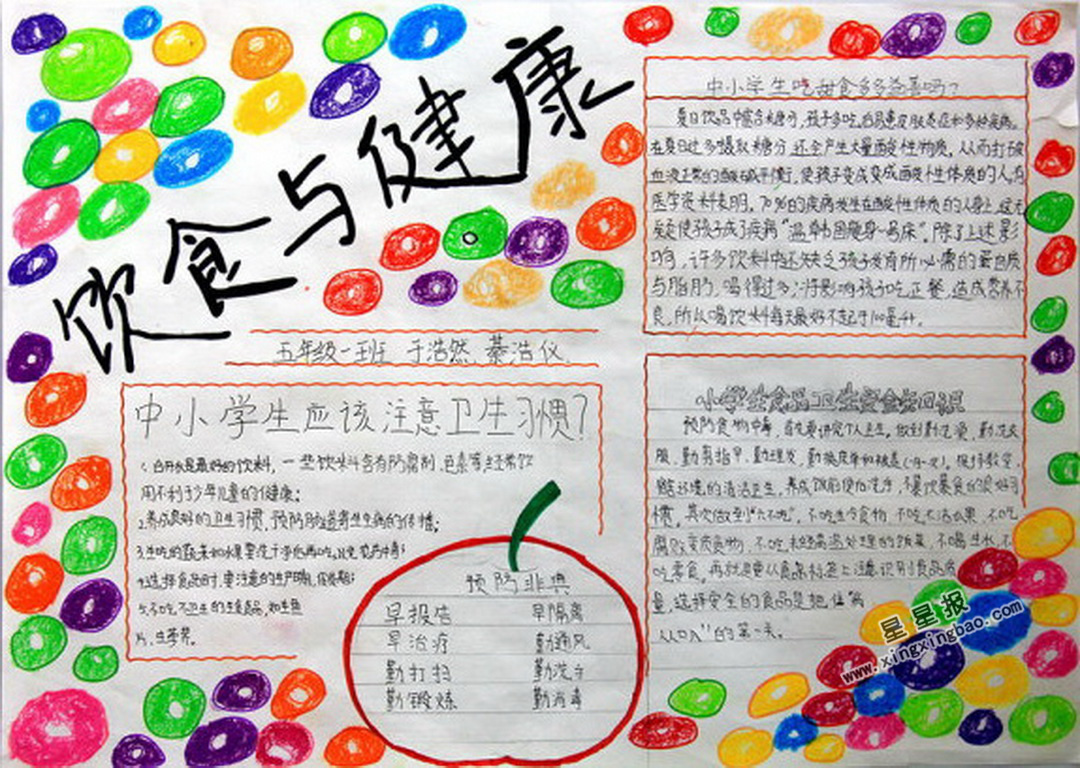 饮食与健康
五年级一班 于浩然 綦浩仪
中小学生吃甜食多多益善吗?
夏日饮品中富含糖分,孩子多吃
在夏日过多摄取糖分,还会产生大量酸性物质,从而打破
血液正常的酸碱平衡,使孩子变成变成酸性体质的人,有
医学资料表明,70%的疾病发生在酸性体质的人身上,这无
疑使孩子成了疾病"温 易床"。除了上述影
响,许多饮料中还缺乏孩子发育所必需的蛋白质
与脂肪,喝得过多,将影响孩子吃正餐,造成营养不
良,所以喝饮料每天最好不超于100毫升。
中小学生应该注意卫生习惯?
1.白开水是最好的饮料,一些饮料含有防腐剂,色素等经常饮
用不利于少年儿童的健康;
2.养成良好的卫生习惯,预防肠道寄生虫病的传播;
3.生吃的蔬菜和水果要洗干净后再吃,以免
4.选择食品时,要注意的生产日期,保质期;
5.不吃不卫生的生食品,如生鱼
片,生荸荠。
预防非典
早报告 早隔离
早治疗 勤通风
勤打扫 勤洗手
勤锻炼 勤消毒
小学生食品卫生安全知识
预防食物中毒,首先要讲究个人卫生。做到勤洗澡,勤洗衣
服,勤剪指甲,勤理发,勤换床单和被套(每周一次)。保持教室,
宿舍环境的清洁卫生,养成饭前便后洗手,不暴饮暴食的良好习
惯,其次做到"六不吃",不吃生冷食物 不吃不洁水果,不吃
腐败变质食物,不吃未经高温处理的饭菜,不喝生水,不
吃零食。再就是要从食品标签上注意识别食品质
量,选择安全的食品是把住"病
从口入"的第一关。
星星报
www.xingxingbao.com